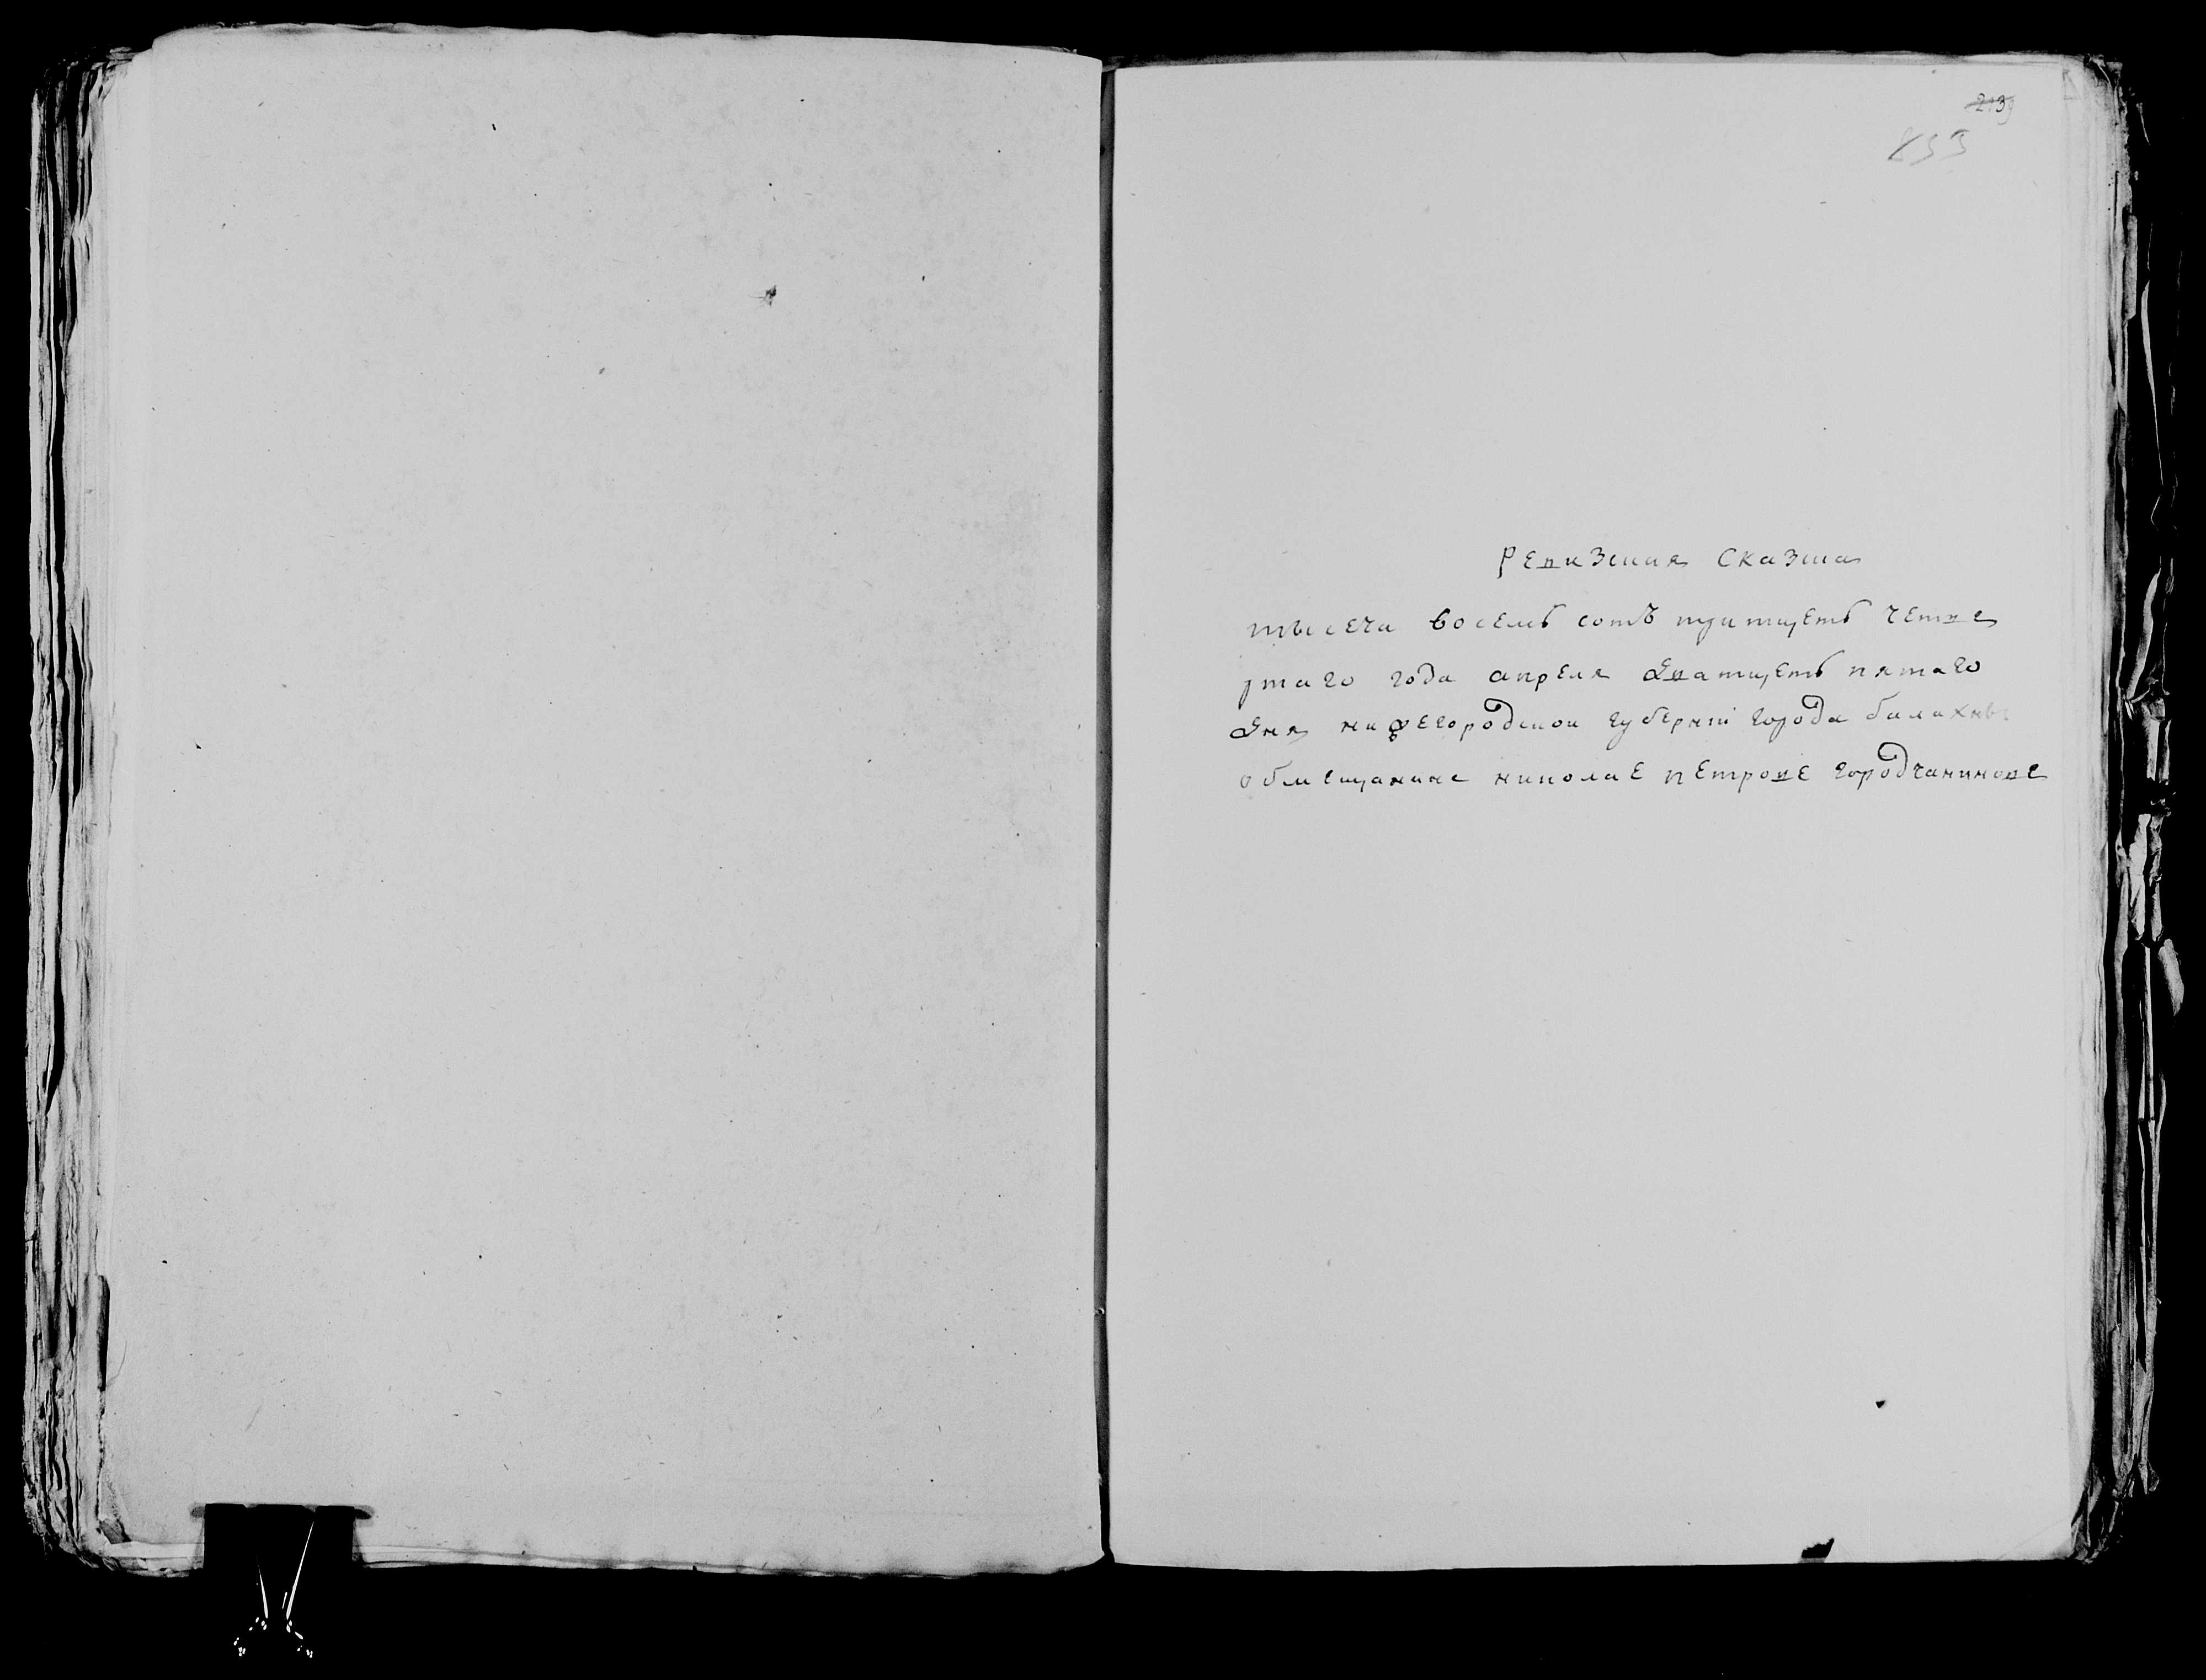 213
833
Ревизская сказка
тысеча восемь сотъ тритцеть четве
ртаго года апреля дватцеть пятаго
дня нижегородской губернiи города балахны
обмещанине николае петрове городчанинове